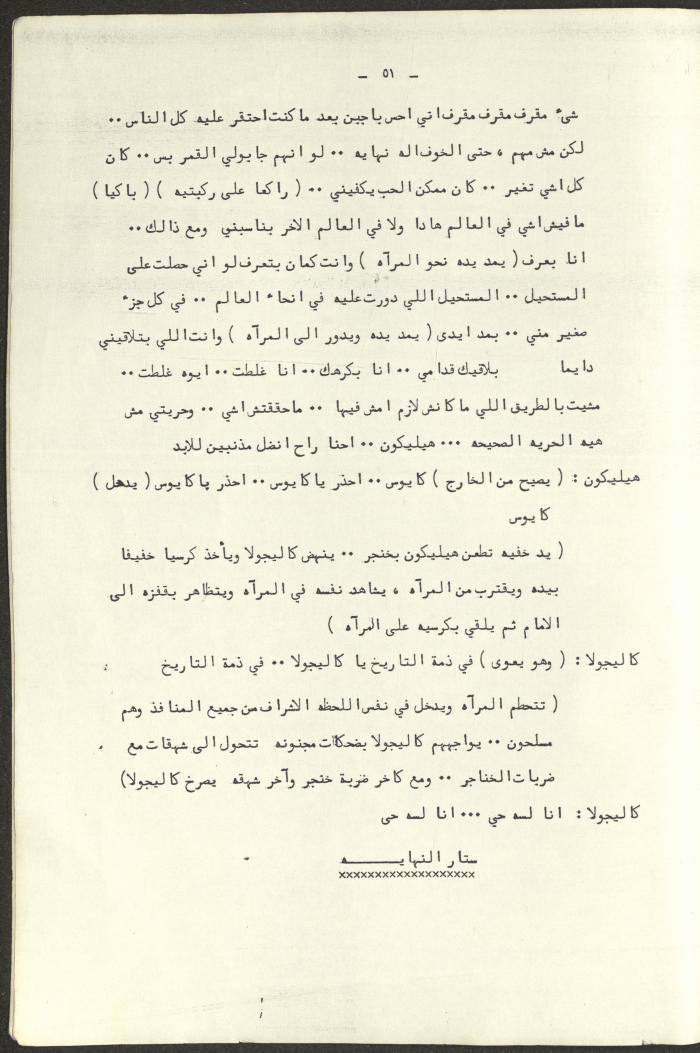 ـ ٥١ ـ
شىء مقرف مقرف مقرف اني احس باجبن بعد ما كنت احتقر عليه كل الناس ٠٠
لكن مش مهم ، حتى الخوف اله نهايه ٠٠ لو انهم جابولي القمر بس ٠٠ كان
كل اشي تغير ٠٠ كان ممكن الحب يكفيني ٠٠ ( راكعا على ركبتيه ) ( باكيا )
مافيش اشي في العالم هادا ولا في العالم الاخر بناسبني ومع ذالك ٠٠
انا بعرف ( يمد يده نحو المرآه ) وانت كمان بتعرف لو اني حصلت على
المستحيل ٠٠ المستحيل اللي دورت عليه في انحاء العالم ٠٠ في كل جزء
صغير مني ٠٠ بمد ايدى ( يمد يده ويدور الى المرآه ) وانت اللي بتلاقيني
دايما بلاقيك قدامي ٠٠ انا بكرهك ٠٠ انا غلطت ٠٠ ايوه غلطت ٠٠
مشيت بالطريق اللي ما كانش لازم امش فيها ٠٠ ماحققتش اشي ٠٠ وحريتي مش
هيه الحريه الصحيحه ٠٠٠ هيليكون ٠٠ احنا راح انضل مذنبين للابد
هيليكون : ( يصيح من الخارج ) كايوس ٠٠ احذر يا كايوس ٠٠ احذر يا كايوس ( يدهل )
كايوس
( يد خفيه تطعن هيليكون بخنجر ٠٠ ينهض كاليجولا ويأخذ كرسيا خفيفا
بيده ويقترب من المرآه ، يشاهد نفسه في المرآه ويتظاهر بقفزه الى
الامام ثم يلقي بكرسيه على المرآه )
كاليجولا : ( وهو يعوى ) في ذمة التاريخ يا كاليجولا ٠٠ في ذمة التاريخ
( تتحطم المرآه ويدخل في نفس اللحظه الاشراف من جميع المنافذ وهم
مسلحون ٠٠ يواجههم كاليجولا بضحكات مجنونه تتحول الى شهقات مع
ضربات الخناجر ٠٠ ومع كاخر ضربة خنجر وآخر شهقه يصرخ كاليجولا)
كاليجولا : انا لسه حي ٠٠٠ انا لسه حى
ستار النهايـــــــه
xxxxxxxxxxxxxxxxxxx